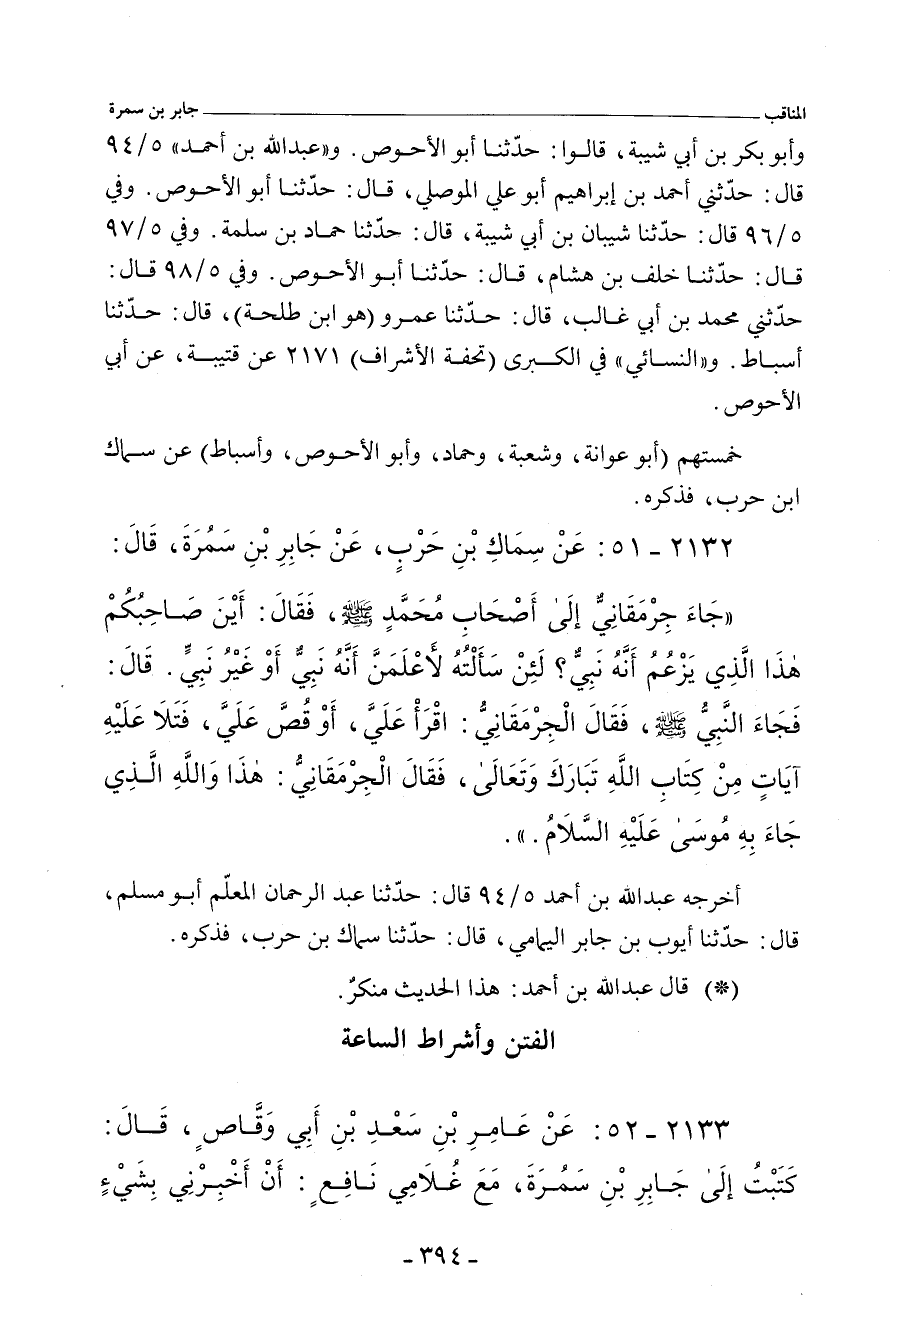 المناقب ـــــــــــــــــــــــــــــــــــــــــ جابر بن سمرة
وأبو بكر بن أبي شيبة، قالوا: حدّثنا أبو الأحوص. و«عبدالله بن أحمد» ٩٤/٥
قال: حدّثني أحمد بن إبراهيم أبو علي الموصلي، قال: حدّثنا أبو الأحوص. وفي
٩٦/٥ قال: حدّثنا شيبان بن أبي شيبة، قال: حدّثنا حماد بن سلمة. وفي ٩٧/٥
قال: حدّثنا خلف بن هشام، قال: حدّثنا أبو الأحوص. وفي ٩٨/٥ قال:
حدّثني محمد بن أبي غالب، قال: حدّثنا عمرو (هو ابن طلحة)، قال: حدّثنا
أسباط. و«النسائي» في الكبرى (تحفة الأشراف) ٢١٧١ عن قتيبة، عن أبي
الأحوص.
خمستهم (أبو عوانة، وشعبة، وحماد، وأبو الأحوص، وأسباط) عن سماك
ابن حرب، فذكره.
٢١٣٢ - ٥١: عَنْ سِمَاكِ بْنِ حَرْبٍ، عَنْ جَابِرِ بْنِ سَمُرَةَ، قَالَ:
«جَاءَ جِرْمَقَانِيٌّ إِلَىٰ أَصْحَابِ مُحَمَّدٍ ﷺ، فَقَالَ: أَيْنَ صَاحِبُكُمْ
هٰذَا الَّذِي يَزْعُمُ أَنَّهُ نَبِيٌّ؟ لَئِنْ سَأَلْتُهُ لَأَعْلَمَنَّ أَنَّهُ نَبِيٌّ أَوْ غَيْرُ نَبِيٍّ. قَالَ:
فَجَاءَ النَّبِيُّ ﷺ، فَقَالَ الْجِرْمَقَانِيُّ: اقْرَأْ عَلَيَّ، أَوْ قُصَّ عَلَيَّ، فَتَلَا عَلَيْهِ
آيَاتٍ مِنْ كِتَابِ اللَّهِ تَبَارَكَ وَتَعَالَىٰ، فَقَالَ الْجِرْمَقَانِيُّ: هٰذَا وَاللَّهِ الَّذِي
جَاءَ بِهِ مُوسَىٰ عَلَيْهِ السَّلَامُ.».
أخرجه عبدالله بن أحمد ٩٤/٥ قال: حدّثنا عبد الرحمان المعلّم أبو مسلم،
قال: حدّثنا أيوب بن جابر اليمامي، قال: حدّثنا سماك بن حرب، فذكره.
(*) قال عبدالله بن أحمد: هذا الحديث منكرٌ.
الفتن وأشراط الساعة
٢١٣٣ - ٥٢: عَنْ عَامِرِ بْنِ سَعْدِ بْنِ أَبِي وَقَّاصٍ، قَالَ:
كَتَبْتُ إِلَىٰ جَابِرِ بْنِ سَمُرَةَ، مَعَ غُلَامِي نَافِعٍ: أَنْ أَخْبِرْنِي بِشَيْءٍ
- ٣٩٤ -